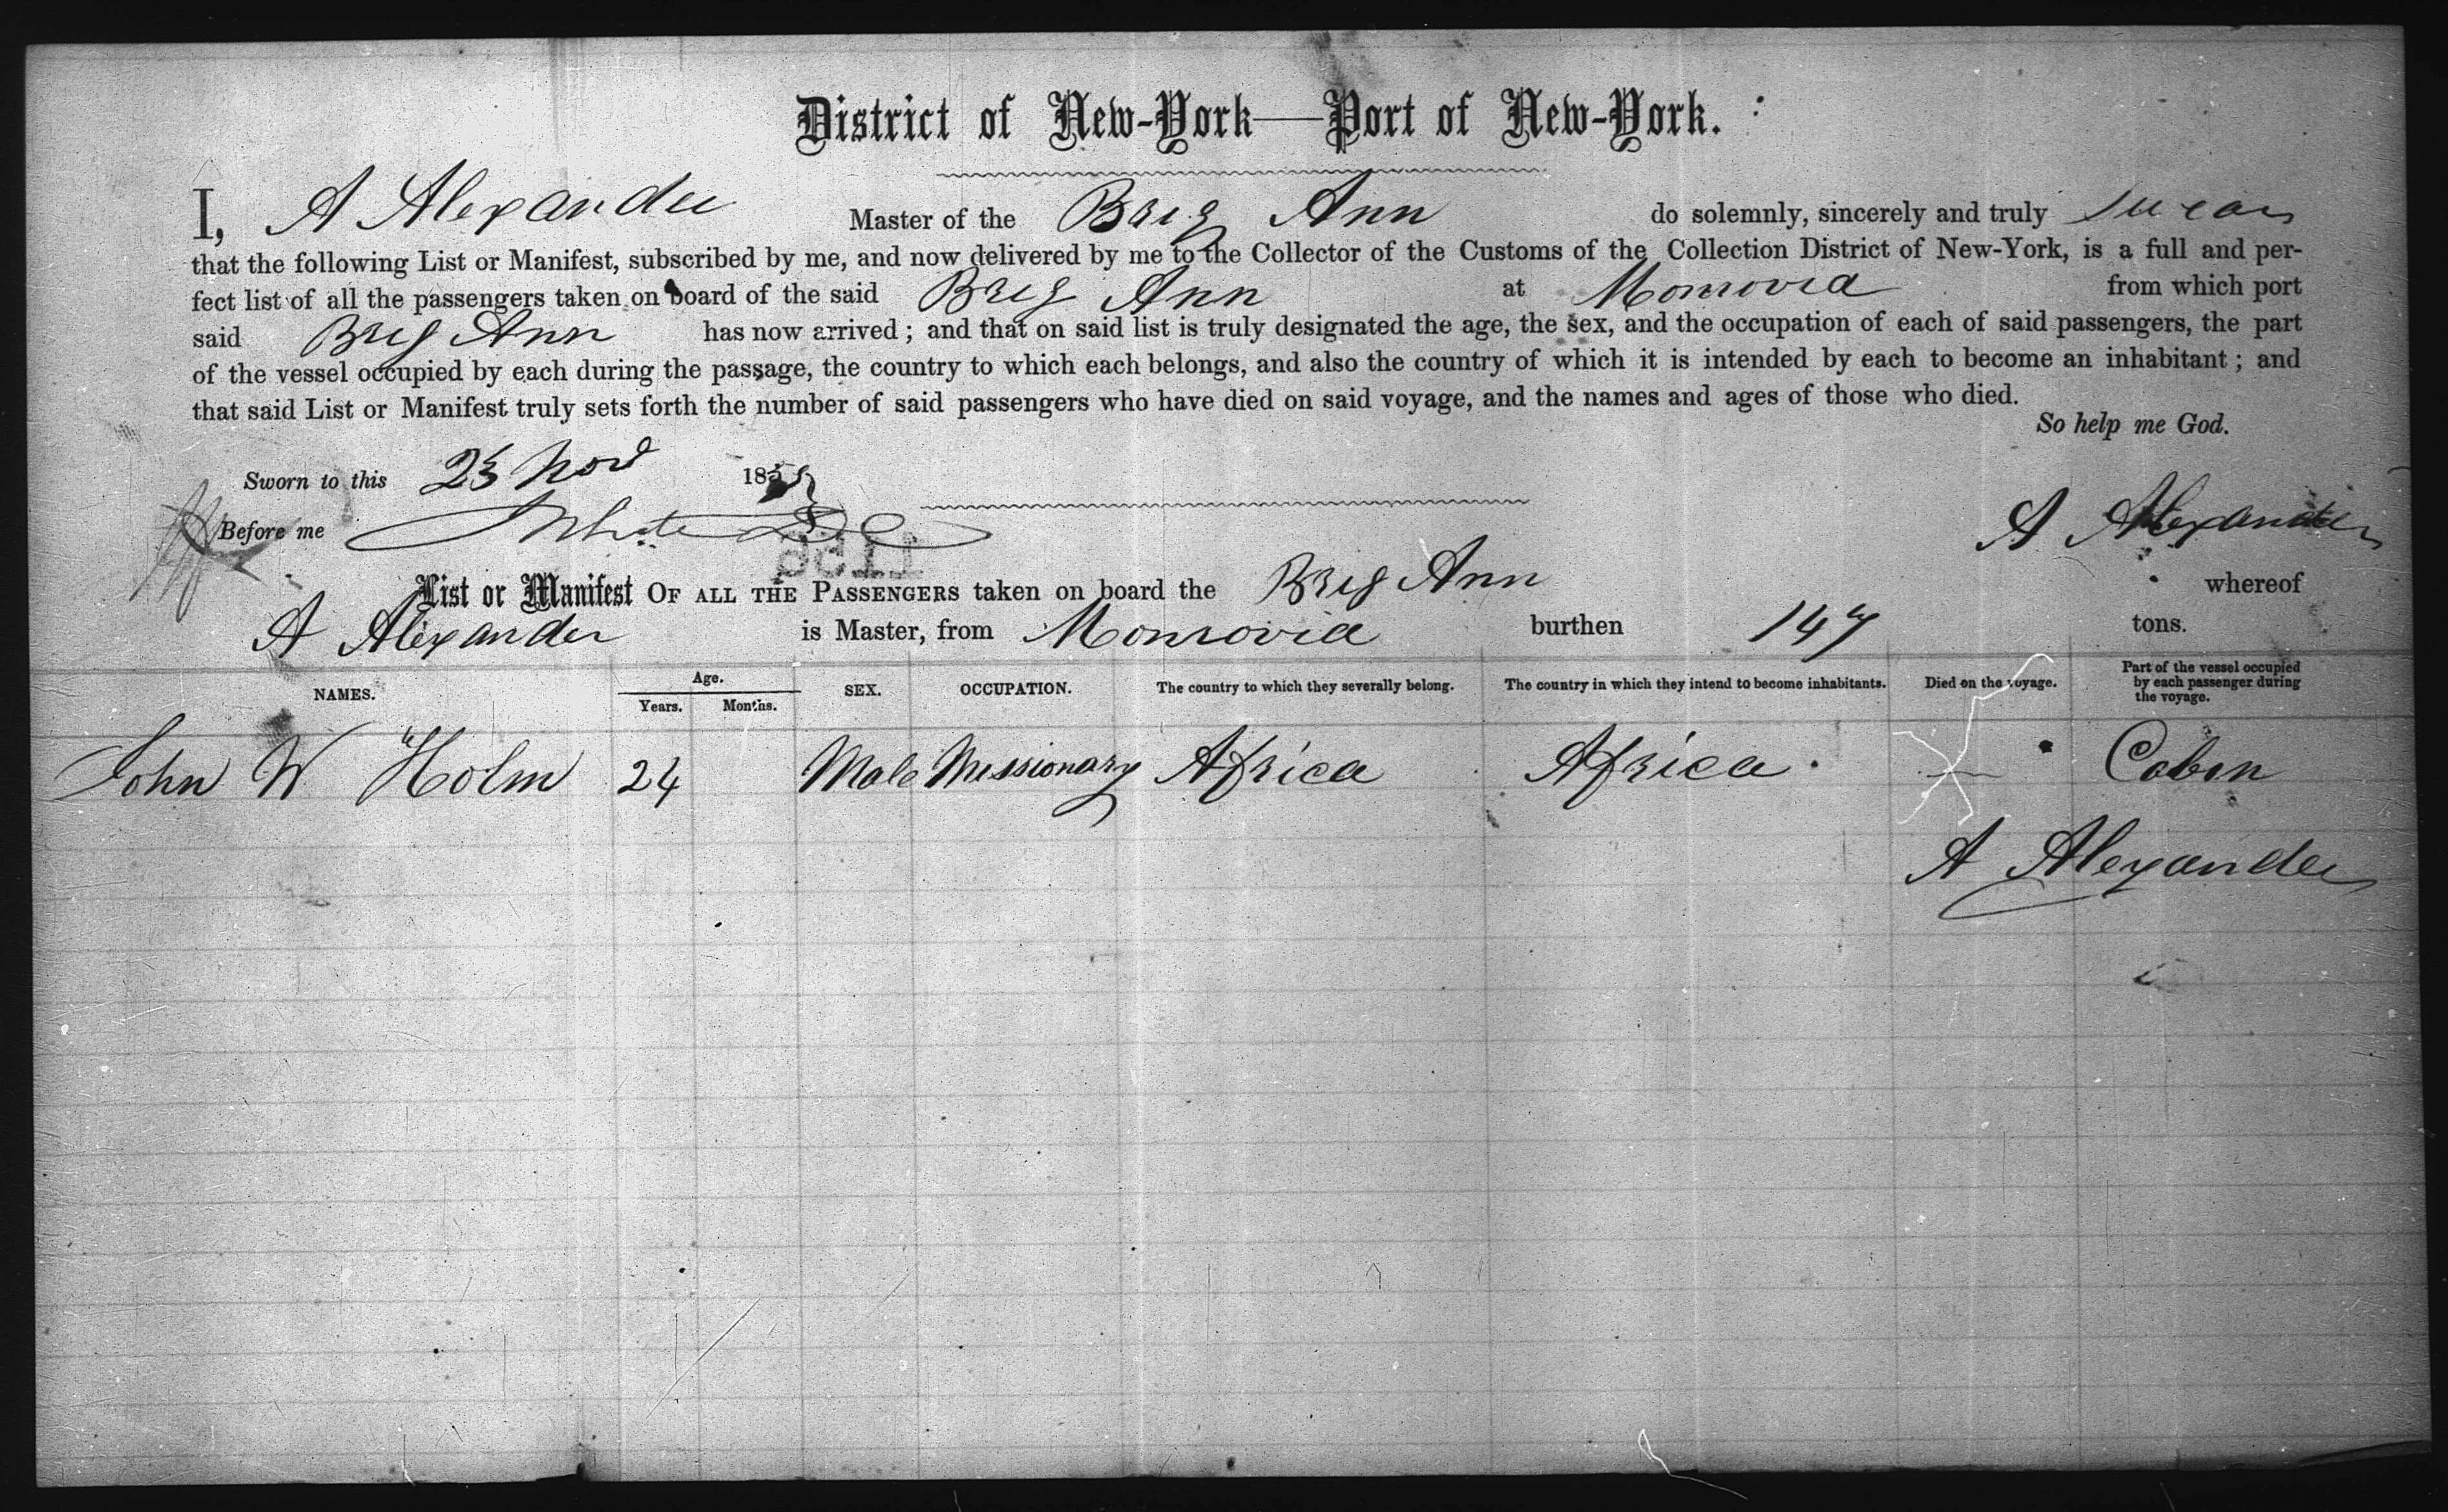 District of New-York—Port of New-York.
I, A Alexander Master of the Brig Ann do solemnly, sincerely and truly swear
that the following List or Manifest, subscribed by me, and now delivered by me to the Collector of the Customs of the Collection District of New-York, is a full and per-
fect list of all the passengers taken on board of the said Brig Ann at Monrovia from which port
said Brig Ann has now arrived; and that on said list is truly designated the age, the sex, and the occupation of each of said passengers, the part
of the vessel occupied by each during the passage, the country to which each belongs, and also the country of which it is intended by each to become an inhabitant; and
that said List or Manifest truly sets forth the number of said passengers who have died on said voyage, and the names and ages of those who died.
So help me God.
Sworn to this 23 Nov 185
Before me White A Alexander
List or Manifest OF ALL THE PASSENGERS taken on board the Brig Ann whereof
A Alexander is Master, from Monrovia burthen 147 tons.
NAMES. Age. Years. Months. SEX. OCCUPATION. The country to which they severally belong. The country in which they intend to become inhabitants. Died on the voyage. Part of the vessel occupied by each passenger during the voyage.
John W Holm 24 Male Missionary Africa Africa Cabin
A Alexander